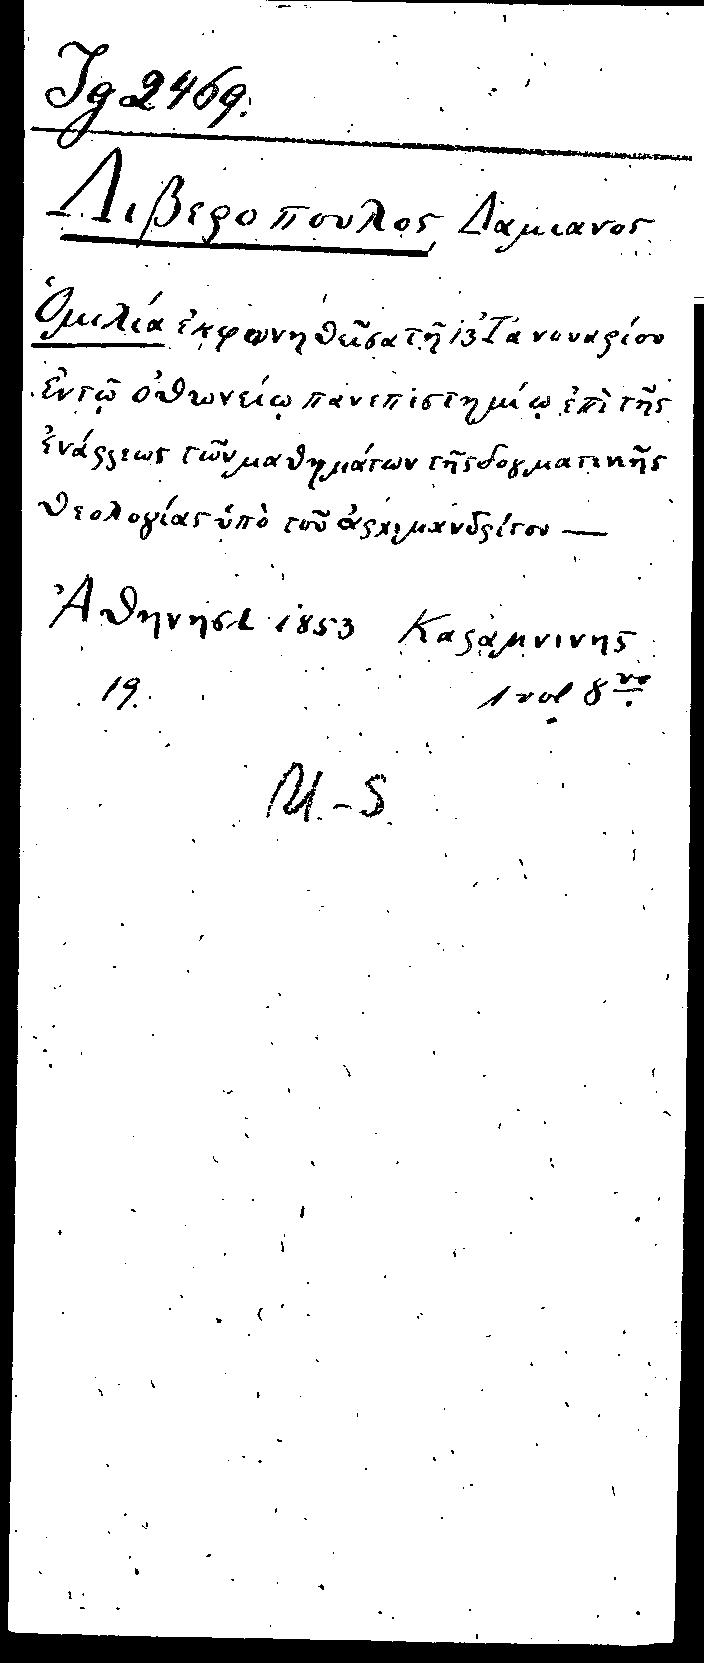 Jg 2469.
Λιβεροπουλος, Δαμιανος
Ὁμιλία ἐκφωνηθεῖσα τῇ 13 Ἰανουαρίου
ἐν τῷ ὀθωνείῳ πανεπιστημίῳ ἐπὶ τῆς
ἐνάρξεως τῶν μαθημάτων τῆς δογματικῆς
θεολογίας ὑπὸ τοῦ ἀρχιμανδρίτου —
Ἀθηνησι 1853 Καραμπινης
19. 1 vol 8vo
M-S